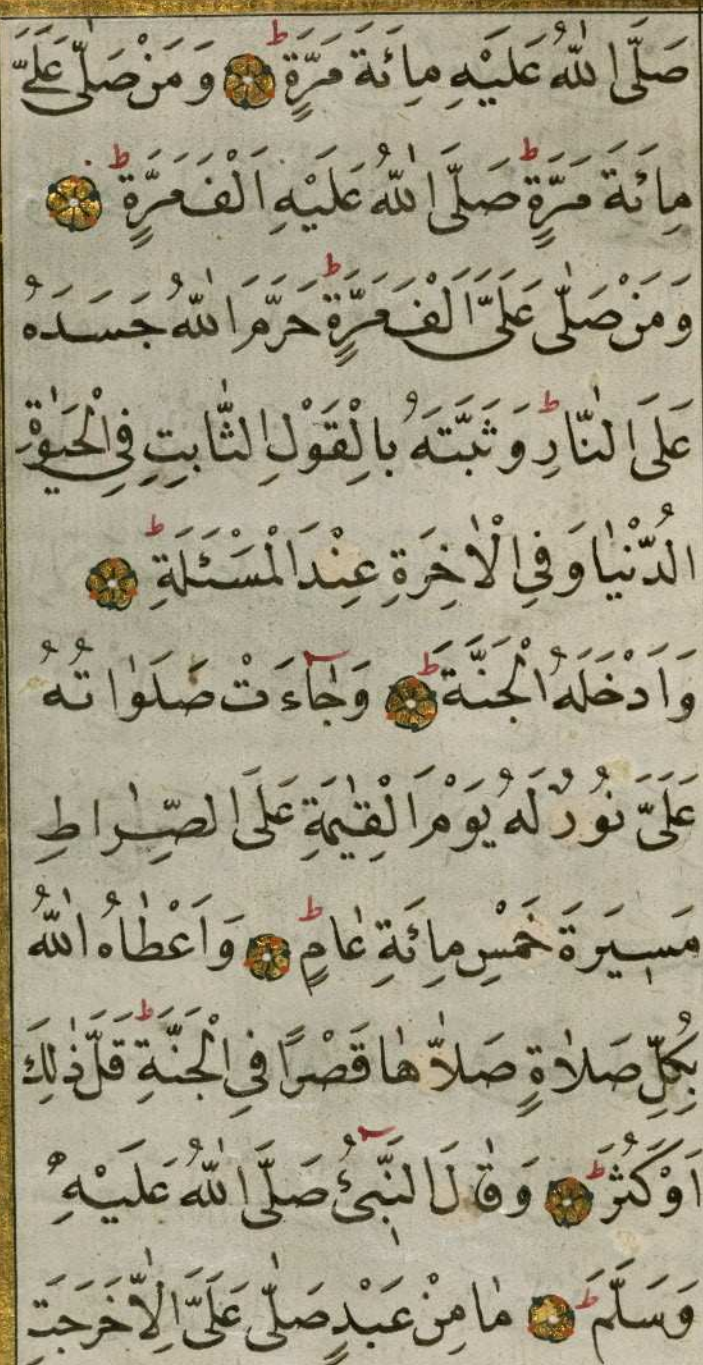 صَلَّى اللّٰهُ عَلَيْهِ مِائَةَ مَرَّةٍ ط وَمَنْ صَلّٰى عَلَيَّ
مِائَةَ مَرَّةٍ ط صَلَّى اللّٰهُ عَلَيْهِ اَلْفَ مَرَّةٍ ط
وَمَنْ صَلّٰى عَلَيَّ اَلْفَ مَرَّةٍ ط حَرَّمَ اللّٰهُ جَسَدَهُ
عَلَى النَّارِ ط وَثَبَّتَهُ بِالْقَوْلِ الثَّابِتِ فِي الْحَيٰوةِ
الدُّنْيَا وَفِي الْاٰخِرَةِ عِنْدَ الْمَسْئَلَةِ ط
وَاَدْخَلَهُ الْجَنَّةَ ط وَجَآءَتْ صَلَوَاتُهُ
عَلَيَّ نُورٌ لَهُ يَوْمَ الْقِيٰمَةِ عَلَى الصِّرَاطِ
مَسِيرَةَ خَمْسِ مِائَةِ عَامٍ ط وَاَعْطَاهُ اللّٰهُ
بِكُلِّ صَلَاةٍ صَلَّاهَا قَصْرًا فِي الْجَنَّةِ ط قَلَّ ذٰلِكَ
اَوْ كَثُرَ ط وَقَالَ النَّبِيُّ صَلَّى اللّٰهُ عَلَيْهِ
وَسَلَّمَ ط مَا مِنْ عَبْدٍ صَلّٰى عَلَيَّ اِلَّا خَرَجَتِ